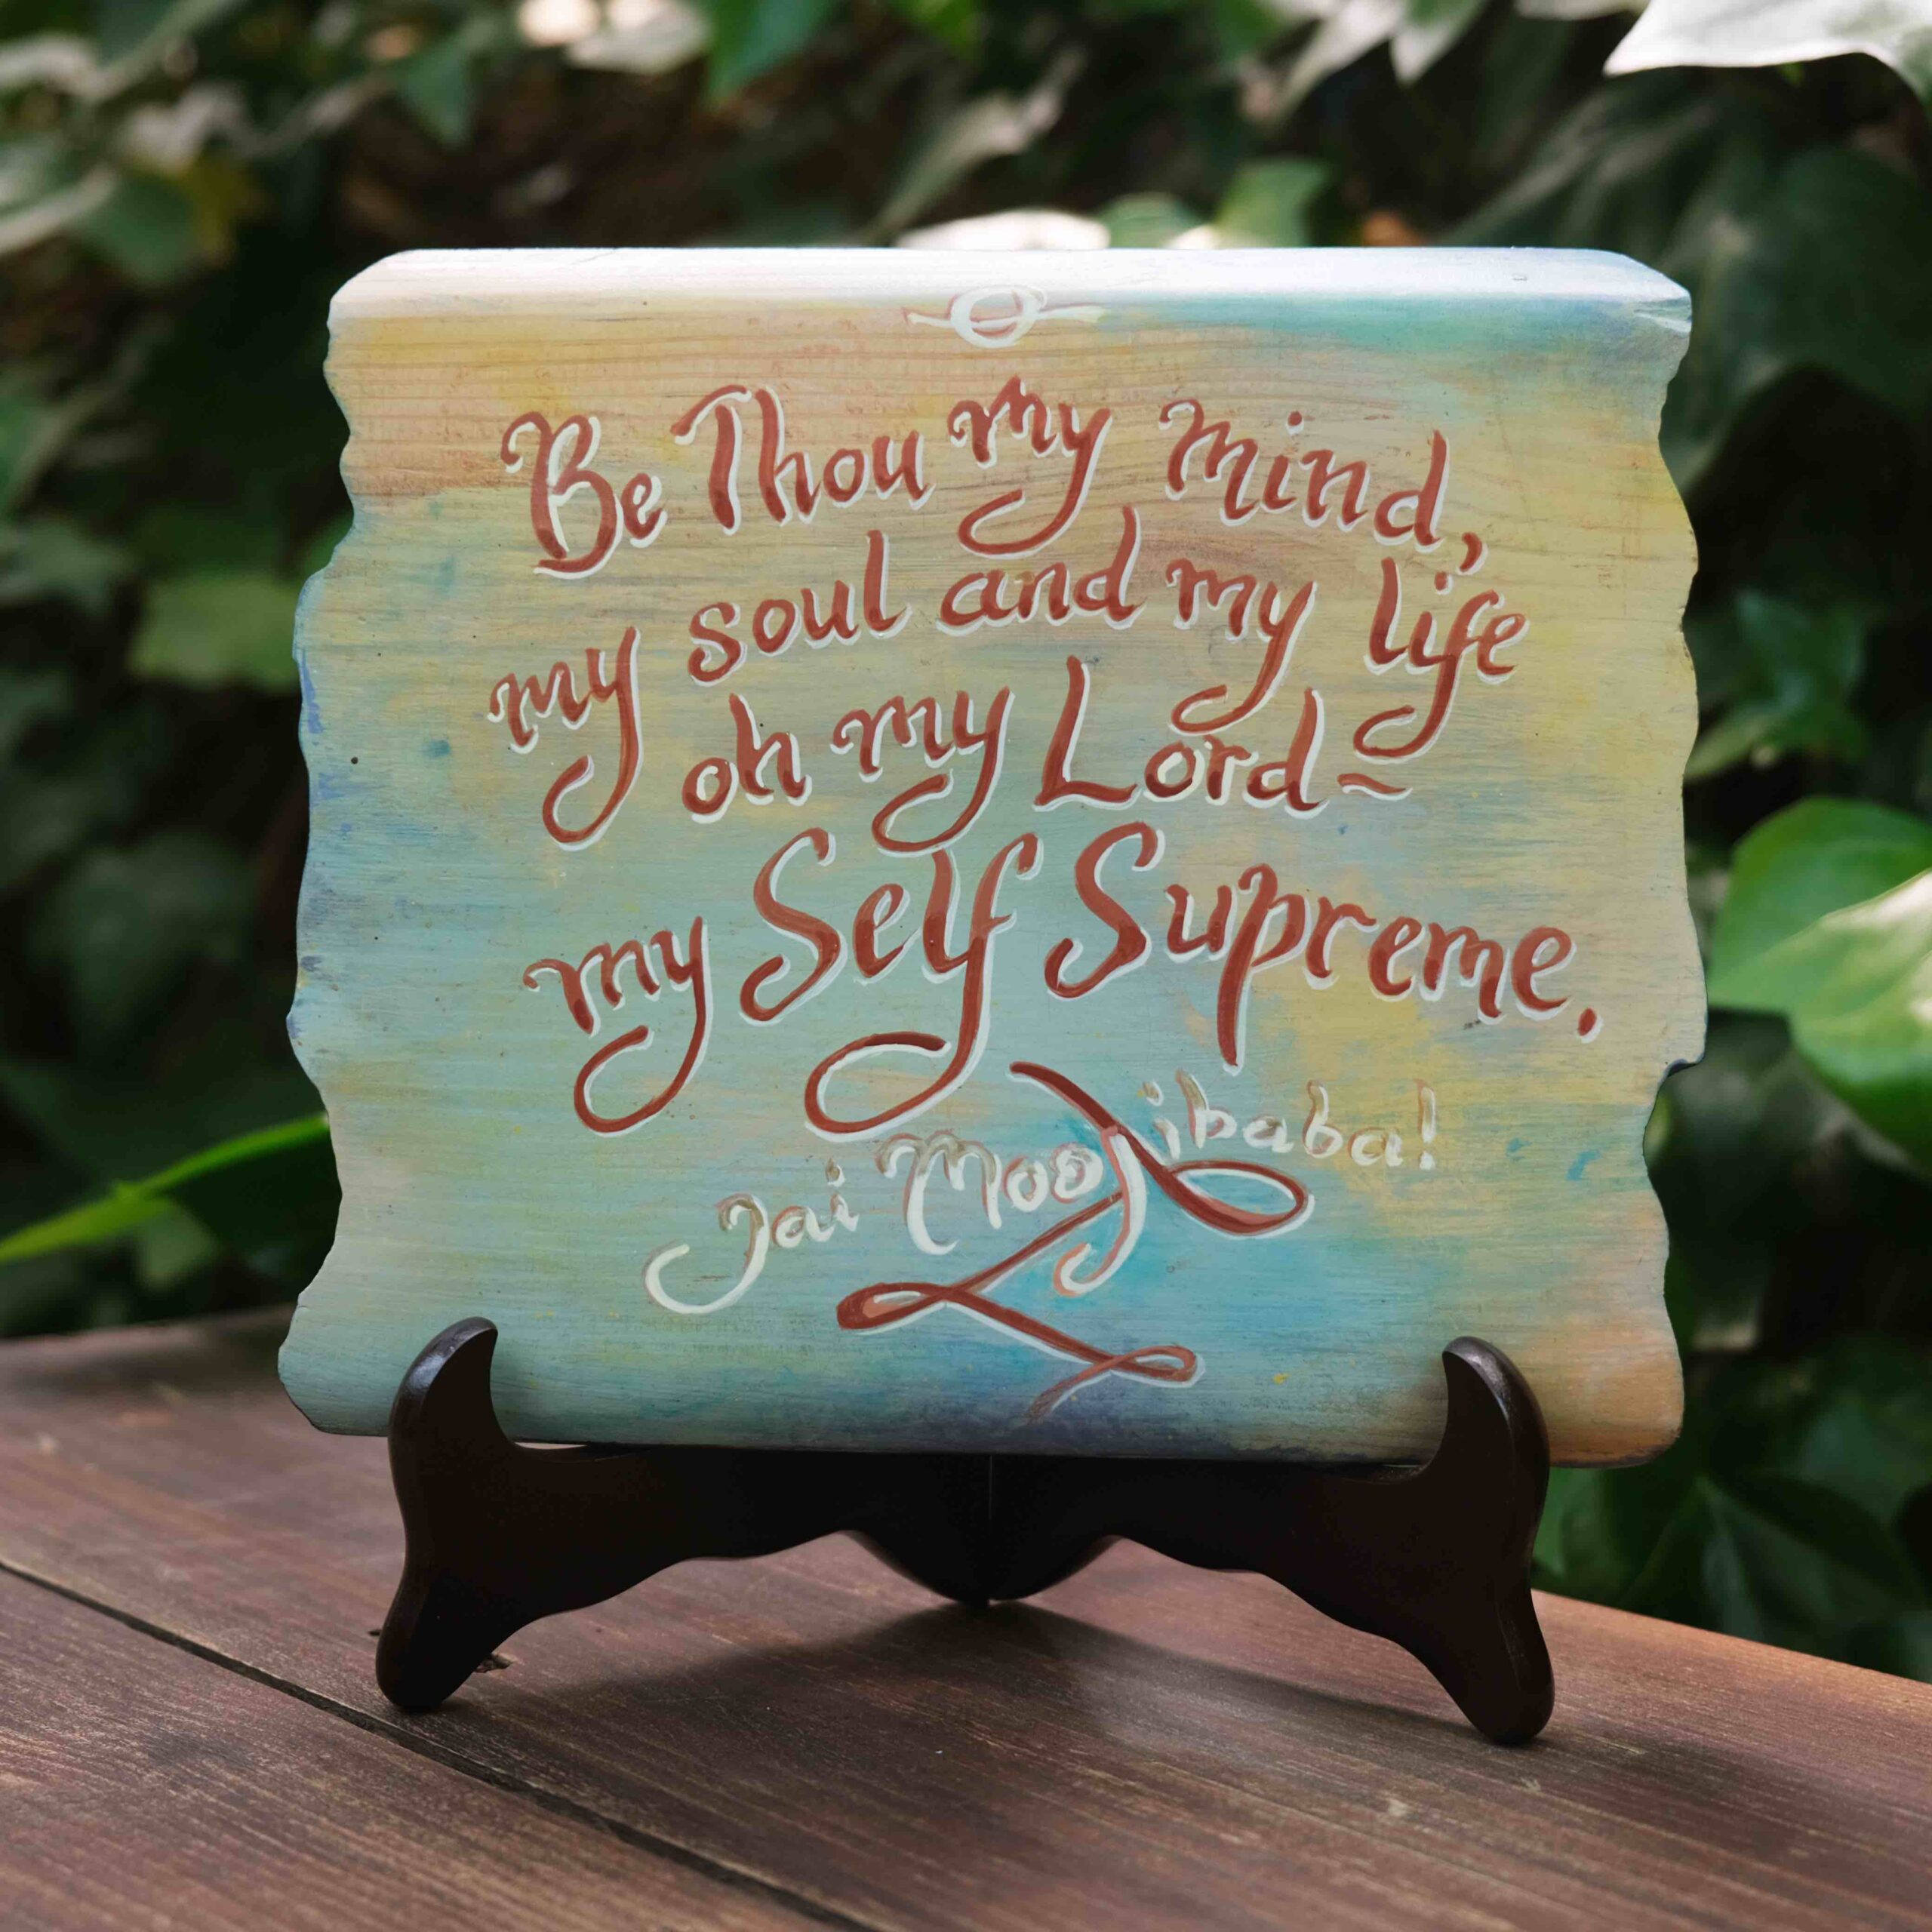 Be Thou my mind,
my soul and my life
oh my Lord ~
my Self Supreme.
Jai Moojibaba!